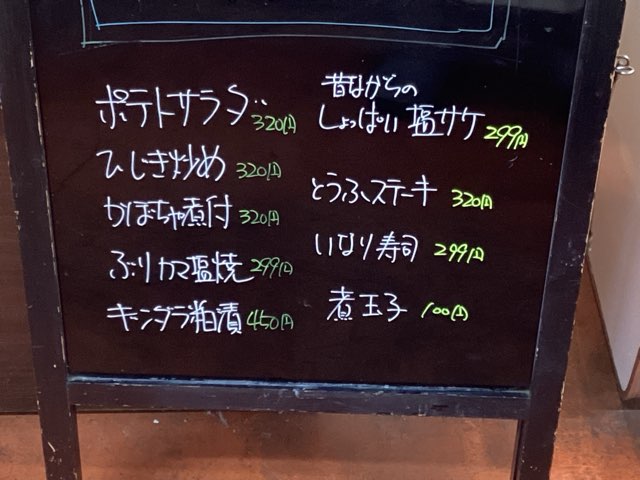 ポテトサラダ 320円
ひじき炒め 320円
かぼちゃ煮付 320円
ぶりカマ塩焼 299円
キンダラ粕漬 450円
昔ながらの
しょっぱい塩サケ 299円
とうふステーキ 320円
いなり寿司 299円
煮玉子 100円